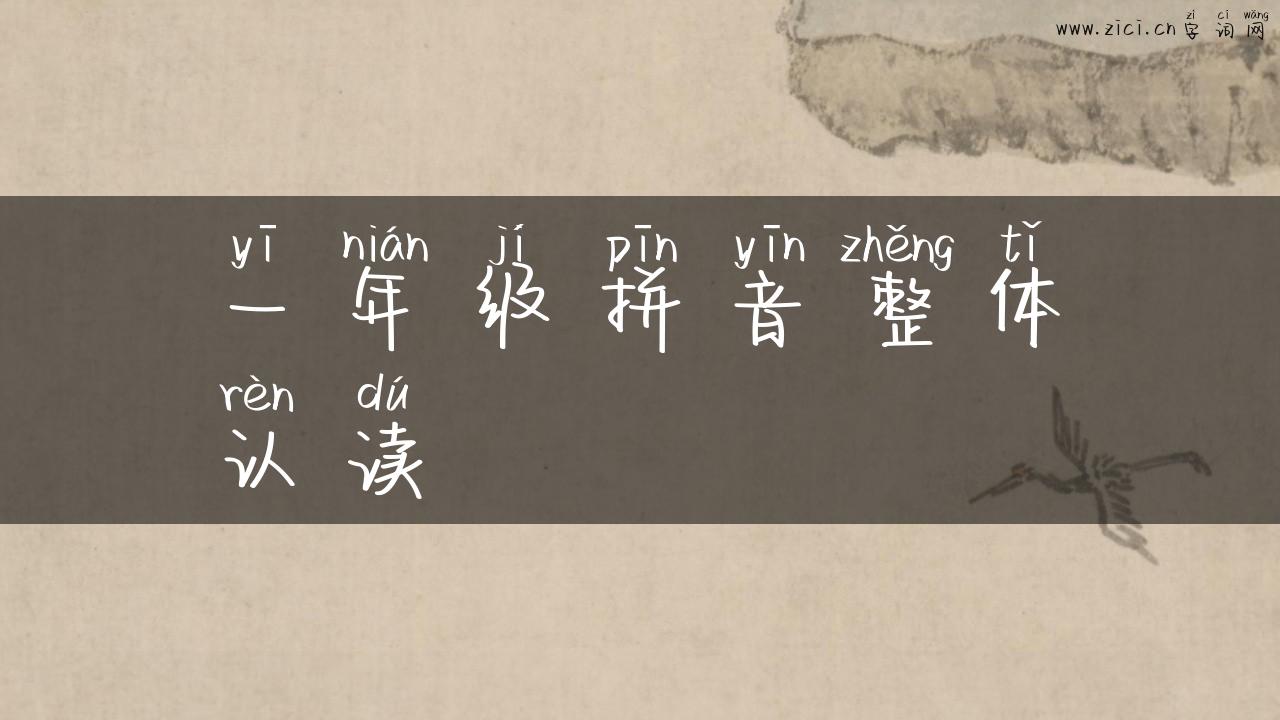 zì cí wǎng
www.zici.cn 字词网
yī nián jí pīn yīn zhěng tǐ
一年级拼音整体
rèn dú
认读